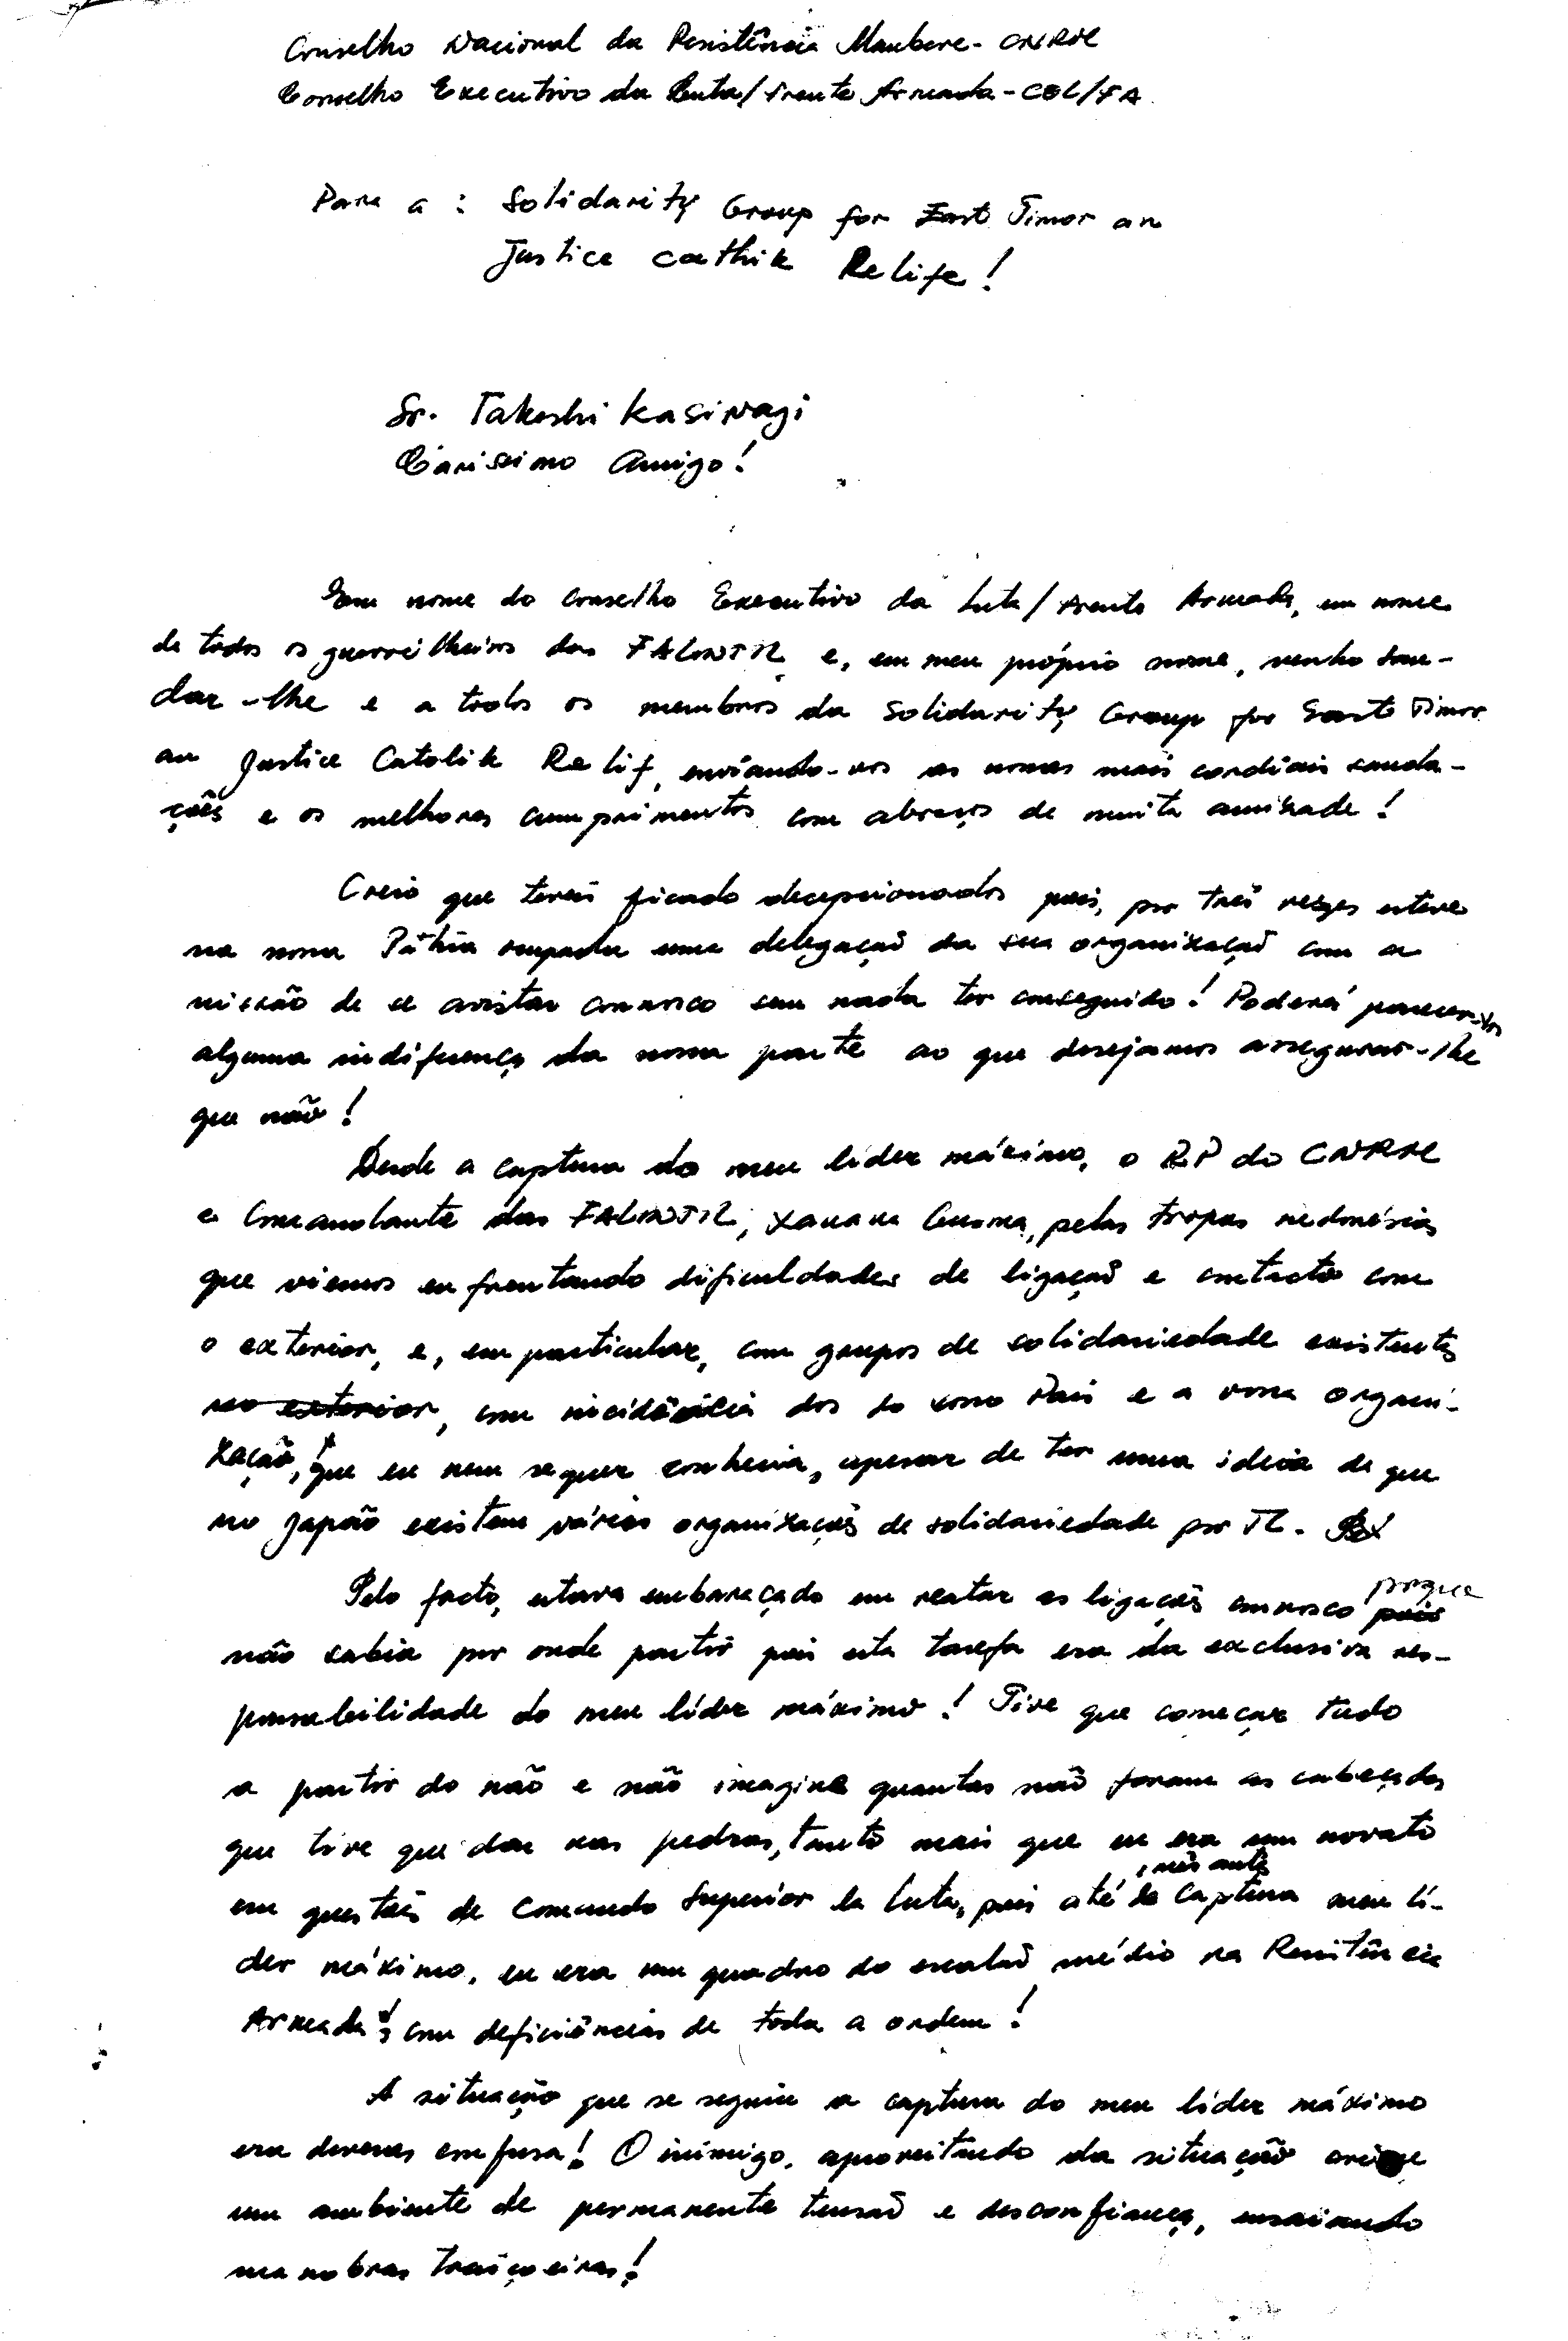 Conselho Nacional da Resistência Maubere - CNRM
Conselho Executivo da Luta/Frente Armada - CEL/FA
Para a : Solidarity Group for East Timor an
Justice Cathik Relife!
Sr. Takeshi Kasiwagi
Caríssimo Amigo!
Em nome do Conselho Executivo da Luta/Frente Armada, em nome
de todos os guerrilheiros das FALINTIL e, em meu próprio nome, venho sau-
dar-lhe e a todos os membros da Solidarity Group for East Timor
an Justice Catolik Relif, enviando-vos as nossas mais cordiais sauda-
ções e os melhores cumprimentos com abraços de muita amizade!
Creio que tereis ficado decepcionados pois, por três vezes esteve
na nossa Pátria ocupada uma delegação da sua organização com a
missão de se avistar connosco sem nada ter conseguido! Poderá parecer-vos
alguma indiferença da nossa parte ao que desejamos assegurar-lhe
que não!
Desde a captura do meu líder máximo, o RP do CNRM
e Comandante das FALINTIL, Xanana Gusmão, pelas tropas indonésias
que viemos enfrentando dificuldades de ligação e contacto com
o exterior, e, em particular, com grupos de solidariedade existentes
no exterior, com incidência dos do vosso País e a vossa organi-
zação, que eu nem sequer conhecia, apesar de ter uma ideia de que
no Japão existem várias organizações de solidariedade por TL.
Pelo facto, estava embaraçado em reatar as ligações connosco pois porque
não sabia por onde partir pois esta tarefa era da exclusiva res-
ponsabilidade do meu líder máximo! Tive que começar tudo
a partir do não e não imagine quantas não foram as cabeçadas
que tive que dar nas pedras, tanto mais que eu era um novato
em questões de Comando Superior da Luta, pois até captura meu lí-
der máximo, eu era um quadro do escalão médio na Resistência
Armada, com deficiências de toda a ordem!
A situação que se seguiu a captura do meu líder máximo
era deveras confusa! O inimigo, aproveitando da situação criou
um ambiente de permanente tensão e desconfiança, ensaiando
manobras traiçoeiras!